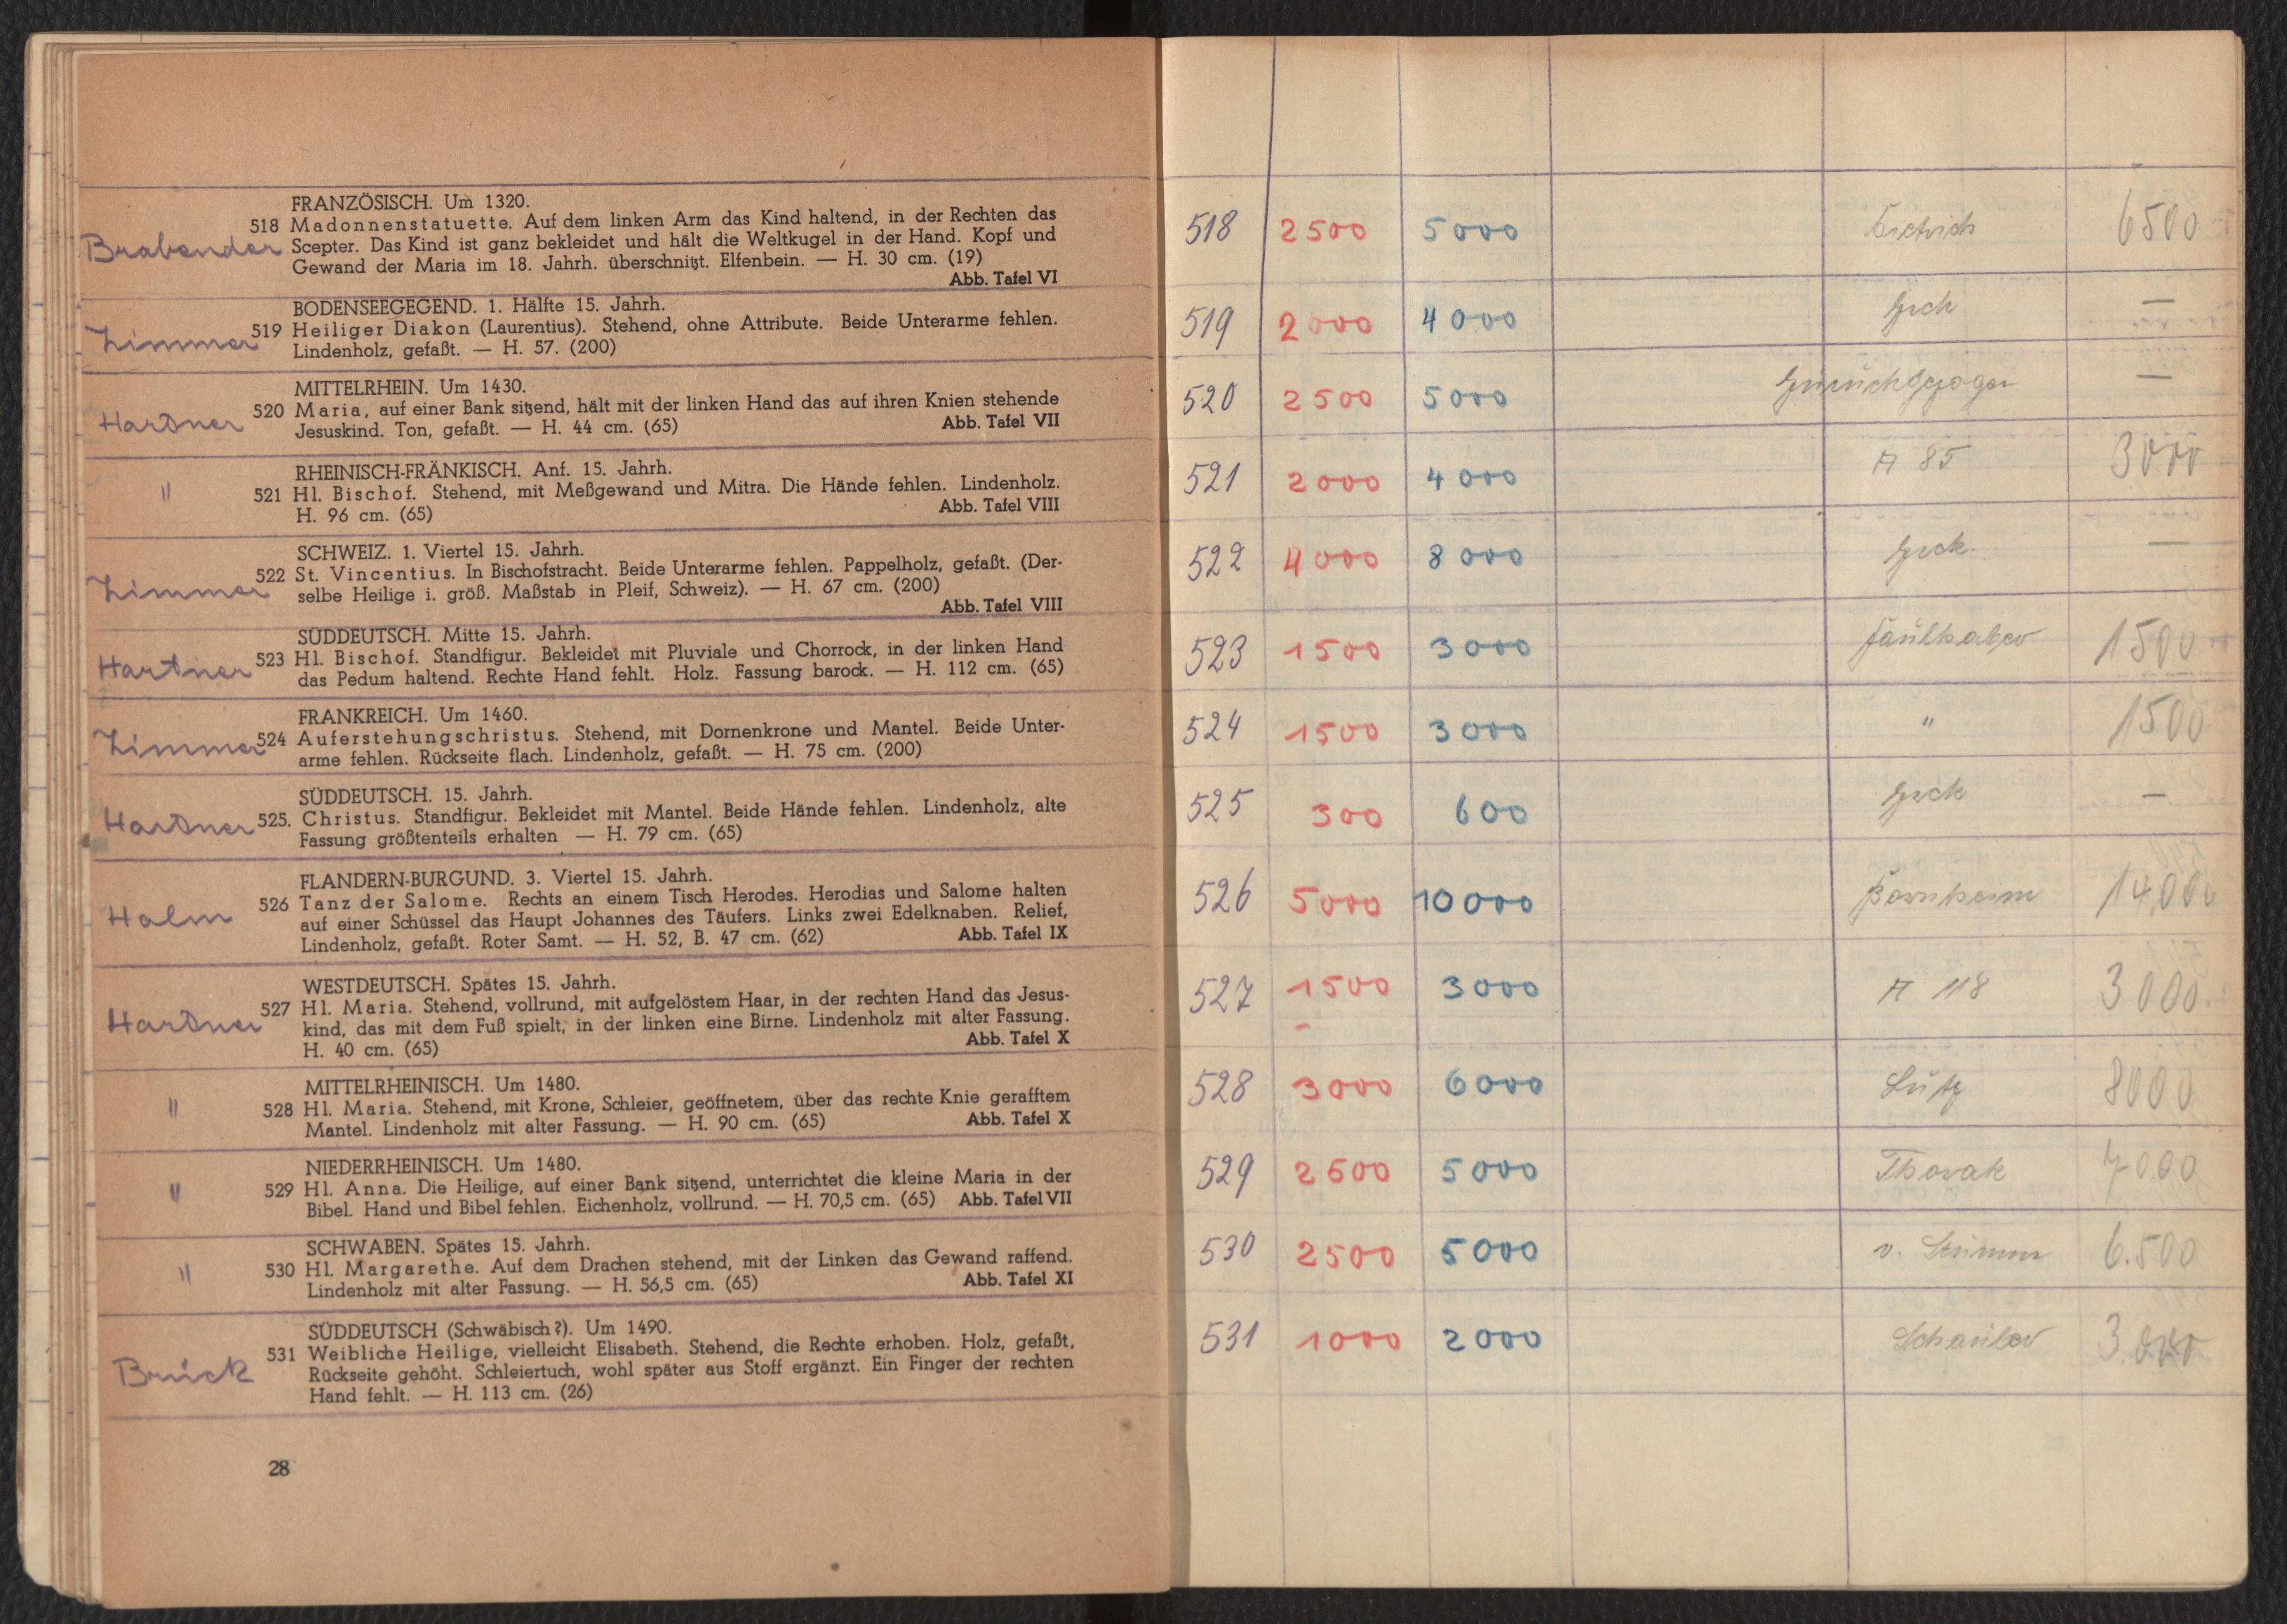 FRANZÖSISCH. Um 1320.
Brabender 518 Madonnenstatuette. Auf dem linken Arm das Kind haltend, in der Rechten das
Scepter. Das Kind ist ganz bekleidet und hält die Weltkugel in der Hand. Kopf und
Gewand der Maria im 18. Jahrh. überschnitzt. Elfenbein. — H. 30 cm. (19)
Abb. Tafel VI
BODENSEEGEGEND. 1. Hälfte 15. Jahrh.
Zimmer 519 Heiliger Diakon (Laurentius). Stehend, ohne Attribute. Beide Unterarme fehlen.
Lindenholz, gefaßt. — H. 57. (200)
MITTELRHEIN. Um 1430.
Hartner 520 Maria, auf einer Bank sitzend, hält mit der linken Hand das auf ihren Knien stehende
Jesuskind. Ton, gefaßt. — H. 44 cm. (65) Abb. Tafel VII
RHEINISCH-FRÄNKISCH. Anf. 15. Jahrh.
" 521 Hl. Bischof. Stehend, mit Meßgewand und Mitra. Die Hände fehlen. Lindenholz.
H. 96 cm. (65) Abb. Tafel VIII
SCHWEIZ. 1. Viertel 15. Jahrh.
Zimmer 522 St. Vincentius. In Bischofstracht. Beide Unterarme fehlen. Pappelholz, gefaßt. (Der-
selbe Heilige i. größ. Maßstab in Pleif, Schweiz). — H. 67 cm. (200)
Abb. Tafel VIII
SÜDDEUTSCH. Mitte 15. Jahrh.
Hartner 523 Hl. Bischof. Standfigur. Bekleidet mit Pluviale und Chorrock, in der linken Hand
das Pedum haltend. Rechte Hand fehlt. Holz. Fassung barock. — H. 112 cm. (65)
FRANKREICH. Um 1460.
Zimmer 524 Auferstehungschristus. Stehend, mit Dornenkrone und Mantel. Beide Unter-
arme fehlen. Rückseite flach. Lindenholz, gefaßt. — H. 75 cm. (200)
SÜDDEUTSCH. 15. Jahrh.
Hartner 525. Christus. Standfigur. Bekleidet mit Mantel. Beide Hände fehlen. Lindenholz, alte
Fassung größtenteils erhalten — H. 79 cm. (65)
FLANDERN-BURGUND. 3. Viertel 15. Jahrh.
Halm 526 Tanz der Salome. Rechts an einem Tisch Herodes. Herodias und Salome halten
auf einer Schüssel das Haupt Johannes des Täufers. Links zwei Edelknaben. Relief,
Lindenholz, gefaßt. Roter Samt. — H. 52, B. 47 cm. (62) Abb. Tafel IX
WESTDEUTSCH. Spätes 15. Jahrh.
Hartner 527 Hl. Maria. Stehend, vollrund, mit aufgelöstem Haar, in der rechten Hand das Jesus-
kind, das mit dem Fuß spielt, in der linken eine Birne. Lindenholz mit alter Fassung.
H. 40 cm. (65) Abb. Tafel X
MITTELRHEINISCH. Um 1480.
" 528 Hl. Maria. Stehend, mit Krone, Schleier, geöffnetem, über das rechte Knie gerafftem
Mantel. Lindenholz mit alter Fassung. — H. 90 cm. (65) Abb. Tafel X
NIEDERRHEINISCH. Um 1480.
" 529 Hl. Anna. Die Heilige, auf einer Bank sitzend, unterrichtet die kleine Maria in der
Bibel. Hand und Bibel fehlen. Eichenholz, vollrund. — H. 70,5 cm. (65) Abb. Tafel VII
SCHWABEN. Spätes 15. Jahrh.
" 530 Hl. Margarethe. Auf dem Drachen stehend, mit der Linken das Gewand raffend.
Lindenholz mit alter Fassung. — H. 56,5 cm. (65) Abb. Tafel XI
SÜDDEUTSCH (Schwäbisch?). Um 1490.
Brück 531 Weibliche Heilige, vielleicht Elisabeth. Stehend, die Rechte erhoben. Holz, gefaßt,
Rückseite gehöht. Schleiertuch, wohl später aus Stoff ergänzt. Ein Finger der rechten
Hand fehlt. — H. 113 cm. (26)
28
518 2500 5000 Dietrich 6500
519 2000 4000 —
520 2500 5000 Zurückgezogen —
521 2000 4000 A 85 3000
522 4000 8000 —
523 1500 3000 Faulhaber 1500
524 1500 3000 " 1500
525 300 600 —
526 5000 10000 Bornheim 14,000
527 1500 3000 A 118 3000
528 3000 6000 Lütz 8000
529 2500 5000 Thorak 7000
530 2500 5000 v. Stumm 6.500
531 1000 2000 3.000